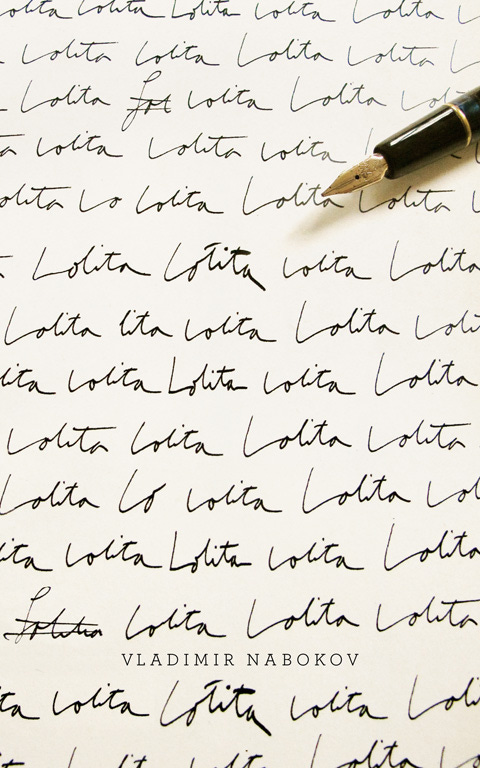 Lolita Lolita Lolita Lolita
Lolita Lolita Lolita Lolita
Lolita Lol Lolita Lolita Lolita
ta Lolita Lolita Lolita
olita Lo Lolita Lolita Lolita
Lolita Lolita Lolita Lolita
Lolita lita Lolita Lolita Lolita
lita Lolita Lolita Lolita Lolita
Lolita Lolita Lolita Lolita
Lolita Lo Lolita Lolita Lo
lita Lolita Lolita Lolita Lolita
Lolita Lolita Lolita Lolita
VLADIMIR NABOKOV
ta Lolita Lolita Lolita Lolita
Lolita Lolita